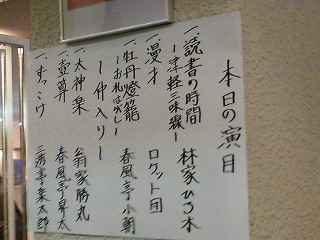 本日の演目
一、読書の時間 林家ひろ木
ー津軽三味線ー
一、漫才 ロケット団
一、牡丹燈籠 春風亭小朝
ーお札はがしー
〜仲入り〜
一、太神楽 翁家勝丸
一、壺算 春風亭昇太
一、ずっこけ 三遊亭楽太郎